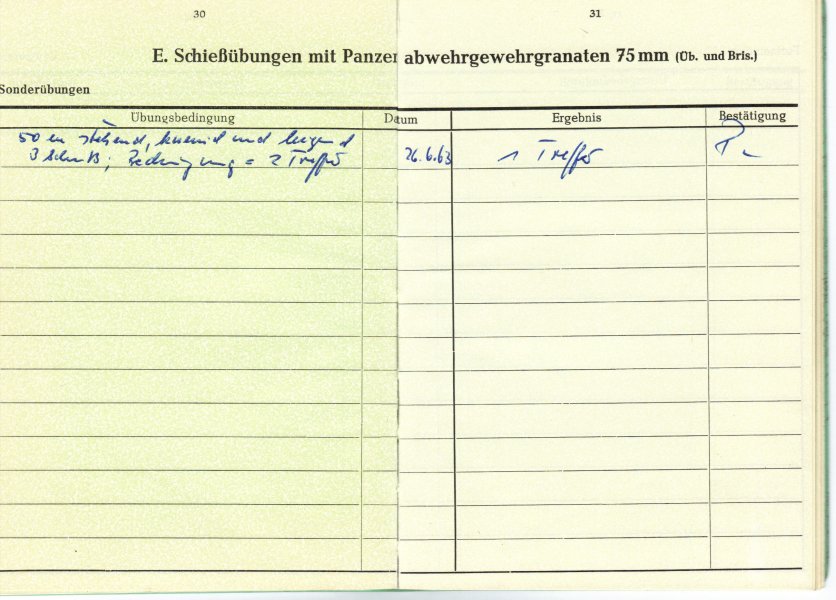 30
31
E. Schießübungen mit Panzerabwehrgewehrgranaten 75 mm (Üb. und Bris.)
Sonderübungen
Übungsbedingung Datum Ergebnis Bestätigung
50 m stehend, knieend und liegend
3 Schuß; Bedingung = 2 Treffer 26.6.63 1 Treffer